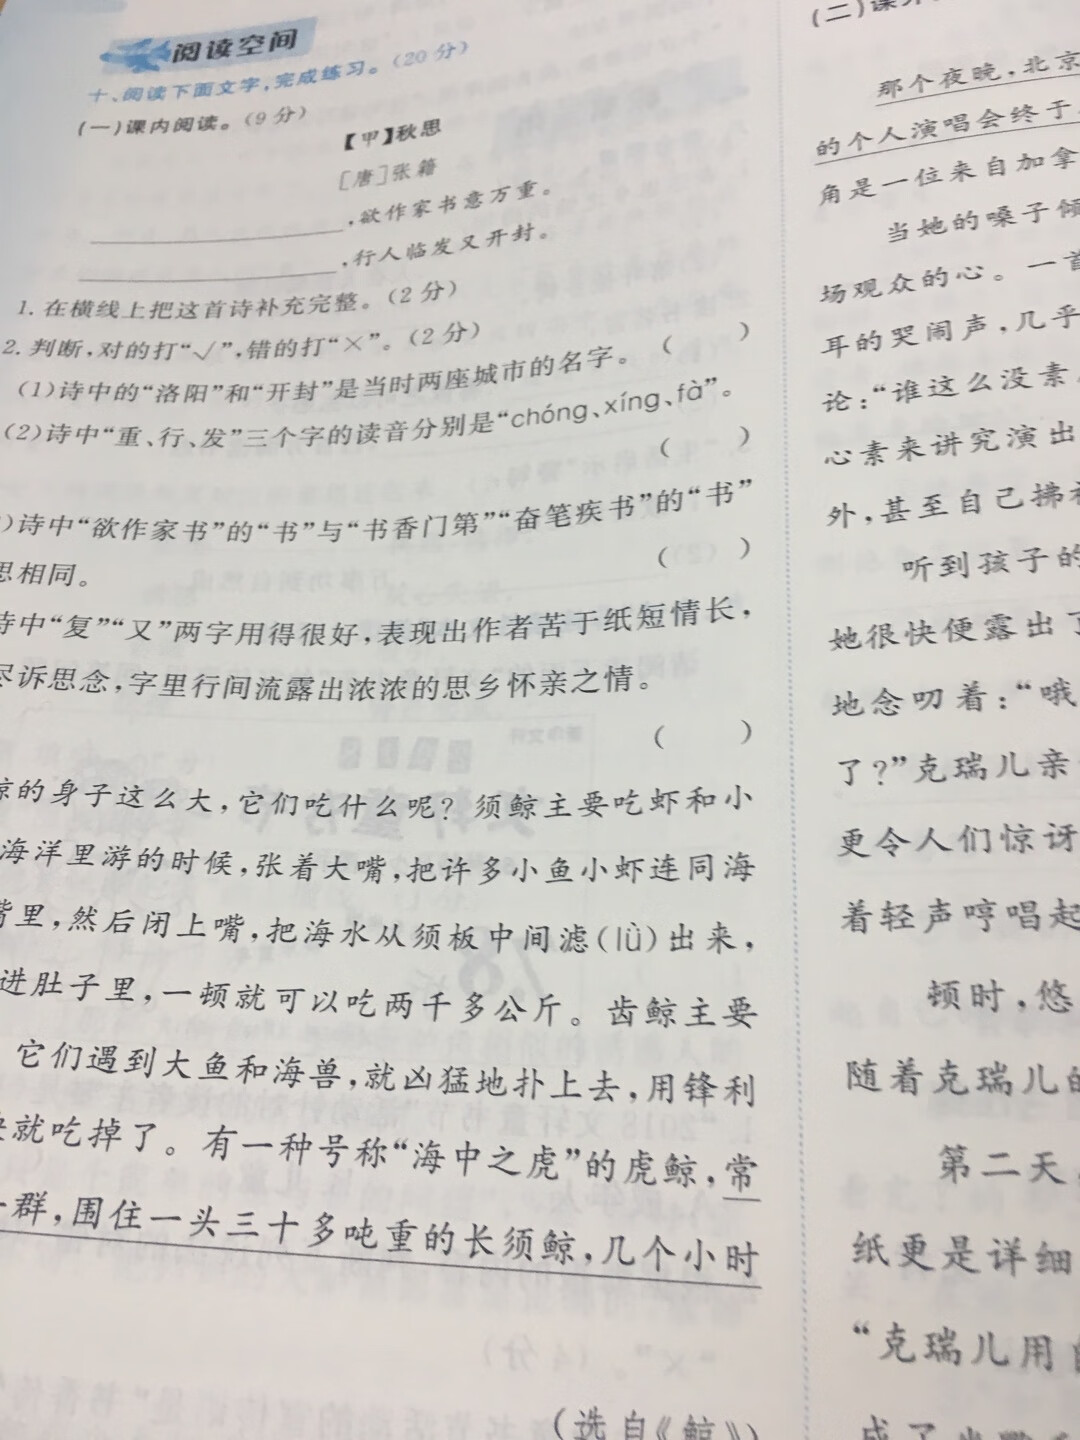 阅读空间
十、阅读下面文字,完成练习。(20分)
(一)课内阅读。(9分)
【甲】秋思
[唐]张籍
,欲作家书意万重。
,行人临发又开封。
1.在横线上把这首诗补充完整。(2分)
2.判断,对的打“√”,错的打“×”。(2分)
(1)诗中的“洛阳”和“开封”是当时两座城市的名字。( )
(2)诗中“重、行、发”三个字的读音分别是“chóng、xíng、fà”。
( )
)诗中“欲作家书”的“书”与“书香门第”“奋笔疾书”的“书”
思相同。 ( )
诗中“复”“又”两字用得很好,表现出作者苦于纸短情长,
尽诉思念,字里行间流露出浓浓的思乡怀亲之情。
( )
鲸的身子这么大,它们吃什么呢?须鲸主要吃虾和小
海洋里游的时候,张着大嘴,把许多小鱼小虾连同海
嘴里,然后闭上嘴,把海水从须板中间滤(lǜ)出来,
进肚子里,一顿就可以吃两千多公斤。齿鲸主要
它们遇到大鱼和海兽,就凶猛地扑上去,用锋利
就吃掉了。有一种号称“海中之虎”的虎鲸,常
群,围住一头三十多吨重的长须鲸,几个小时
(选自《鲸》)
(二)课外
那个夜晚,北京
的个人演唱会终于
角是一位来自加拿
当她的嗓子倾
场观众的心。一首
耳的哭闹声,几乎
论:“谁这么没素
心素来讲究演出
外,甚至自己拂袖
听到孩子的
她很快便露出了
地念叨着:“哦
了?”克瑞儿亲
更令人们惊讶
着轻声哼唱起
顿时,悠
随着克瑞儿的
第二天,
纸更是详细
“克瑞儿用自
成了